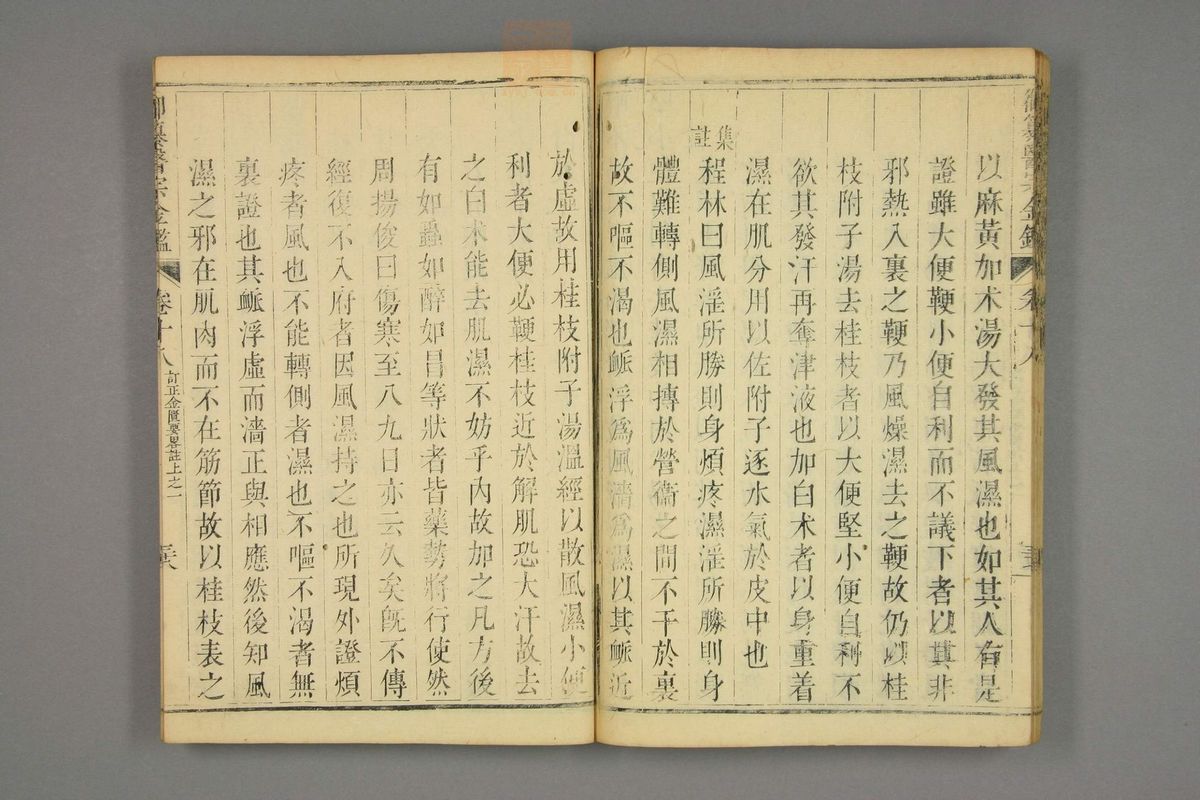 以麻黃加术湯大發其風濕也如其人有是
證雖大便鞕小便自利而不議下者以其非
邪熱入裏之鞕乃風燥濕去之鞕故仍以桂
枝附子湯去桂枝者以大便堅小便自利不
欲其發汗再奪津液也加白术者以身重着
濕在肌分用以佐附子逐水氣於皮中也
集註
程林曰風淫所勝則身煩疼濕淫所勝則身
體難轉側風濕相摶於營衞之間不干於裏
故不嘔不渴也脈浮爲風濇爲濕以其脈近
於虛故用桂枝附子湯溫經以散風濕小便
利者大便必鞕桂枝近於解肌恐大汗故去
之白术能去肌濕不妨乎內故加之凡方後
有如蟲如醉如冒等狀者皆藥勢將行使然
周揚俊曰傷寒至八九日亦云久矣旣不傳
經復不入府者因風濕持之也所現外證煩
疼者風也不能轉側者濕也不嘔不渴者無
裏證也其脈浮虛而濇正與相應然後知風
濕之邪在肌肉而不在筋節故以桂枝表之
御纂醫宗金鑑
卷十八
訂正金匱要畧註上之一